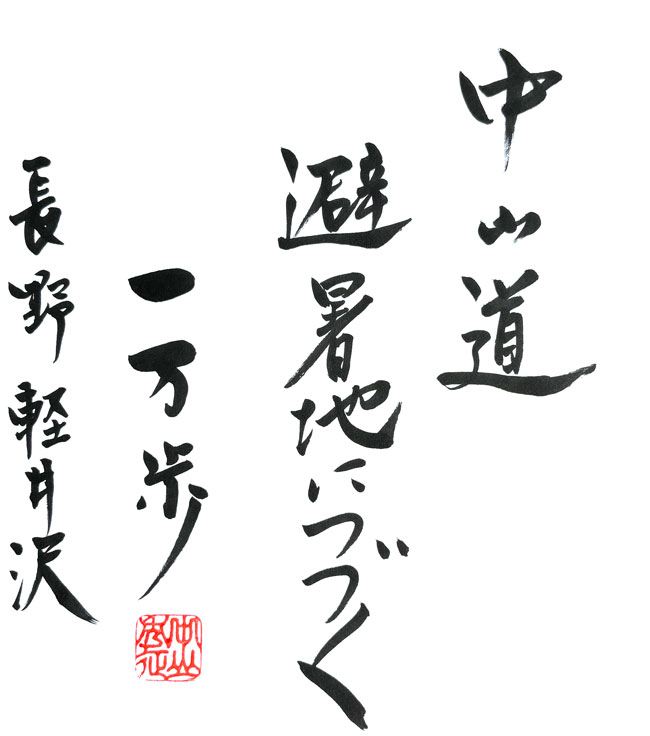 中山道
避暑地につづく
一万歩
長野軽井沢